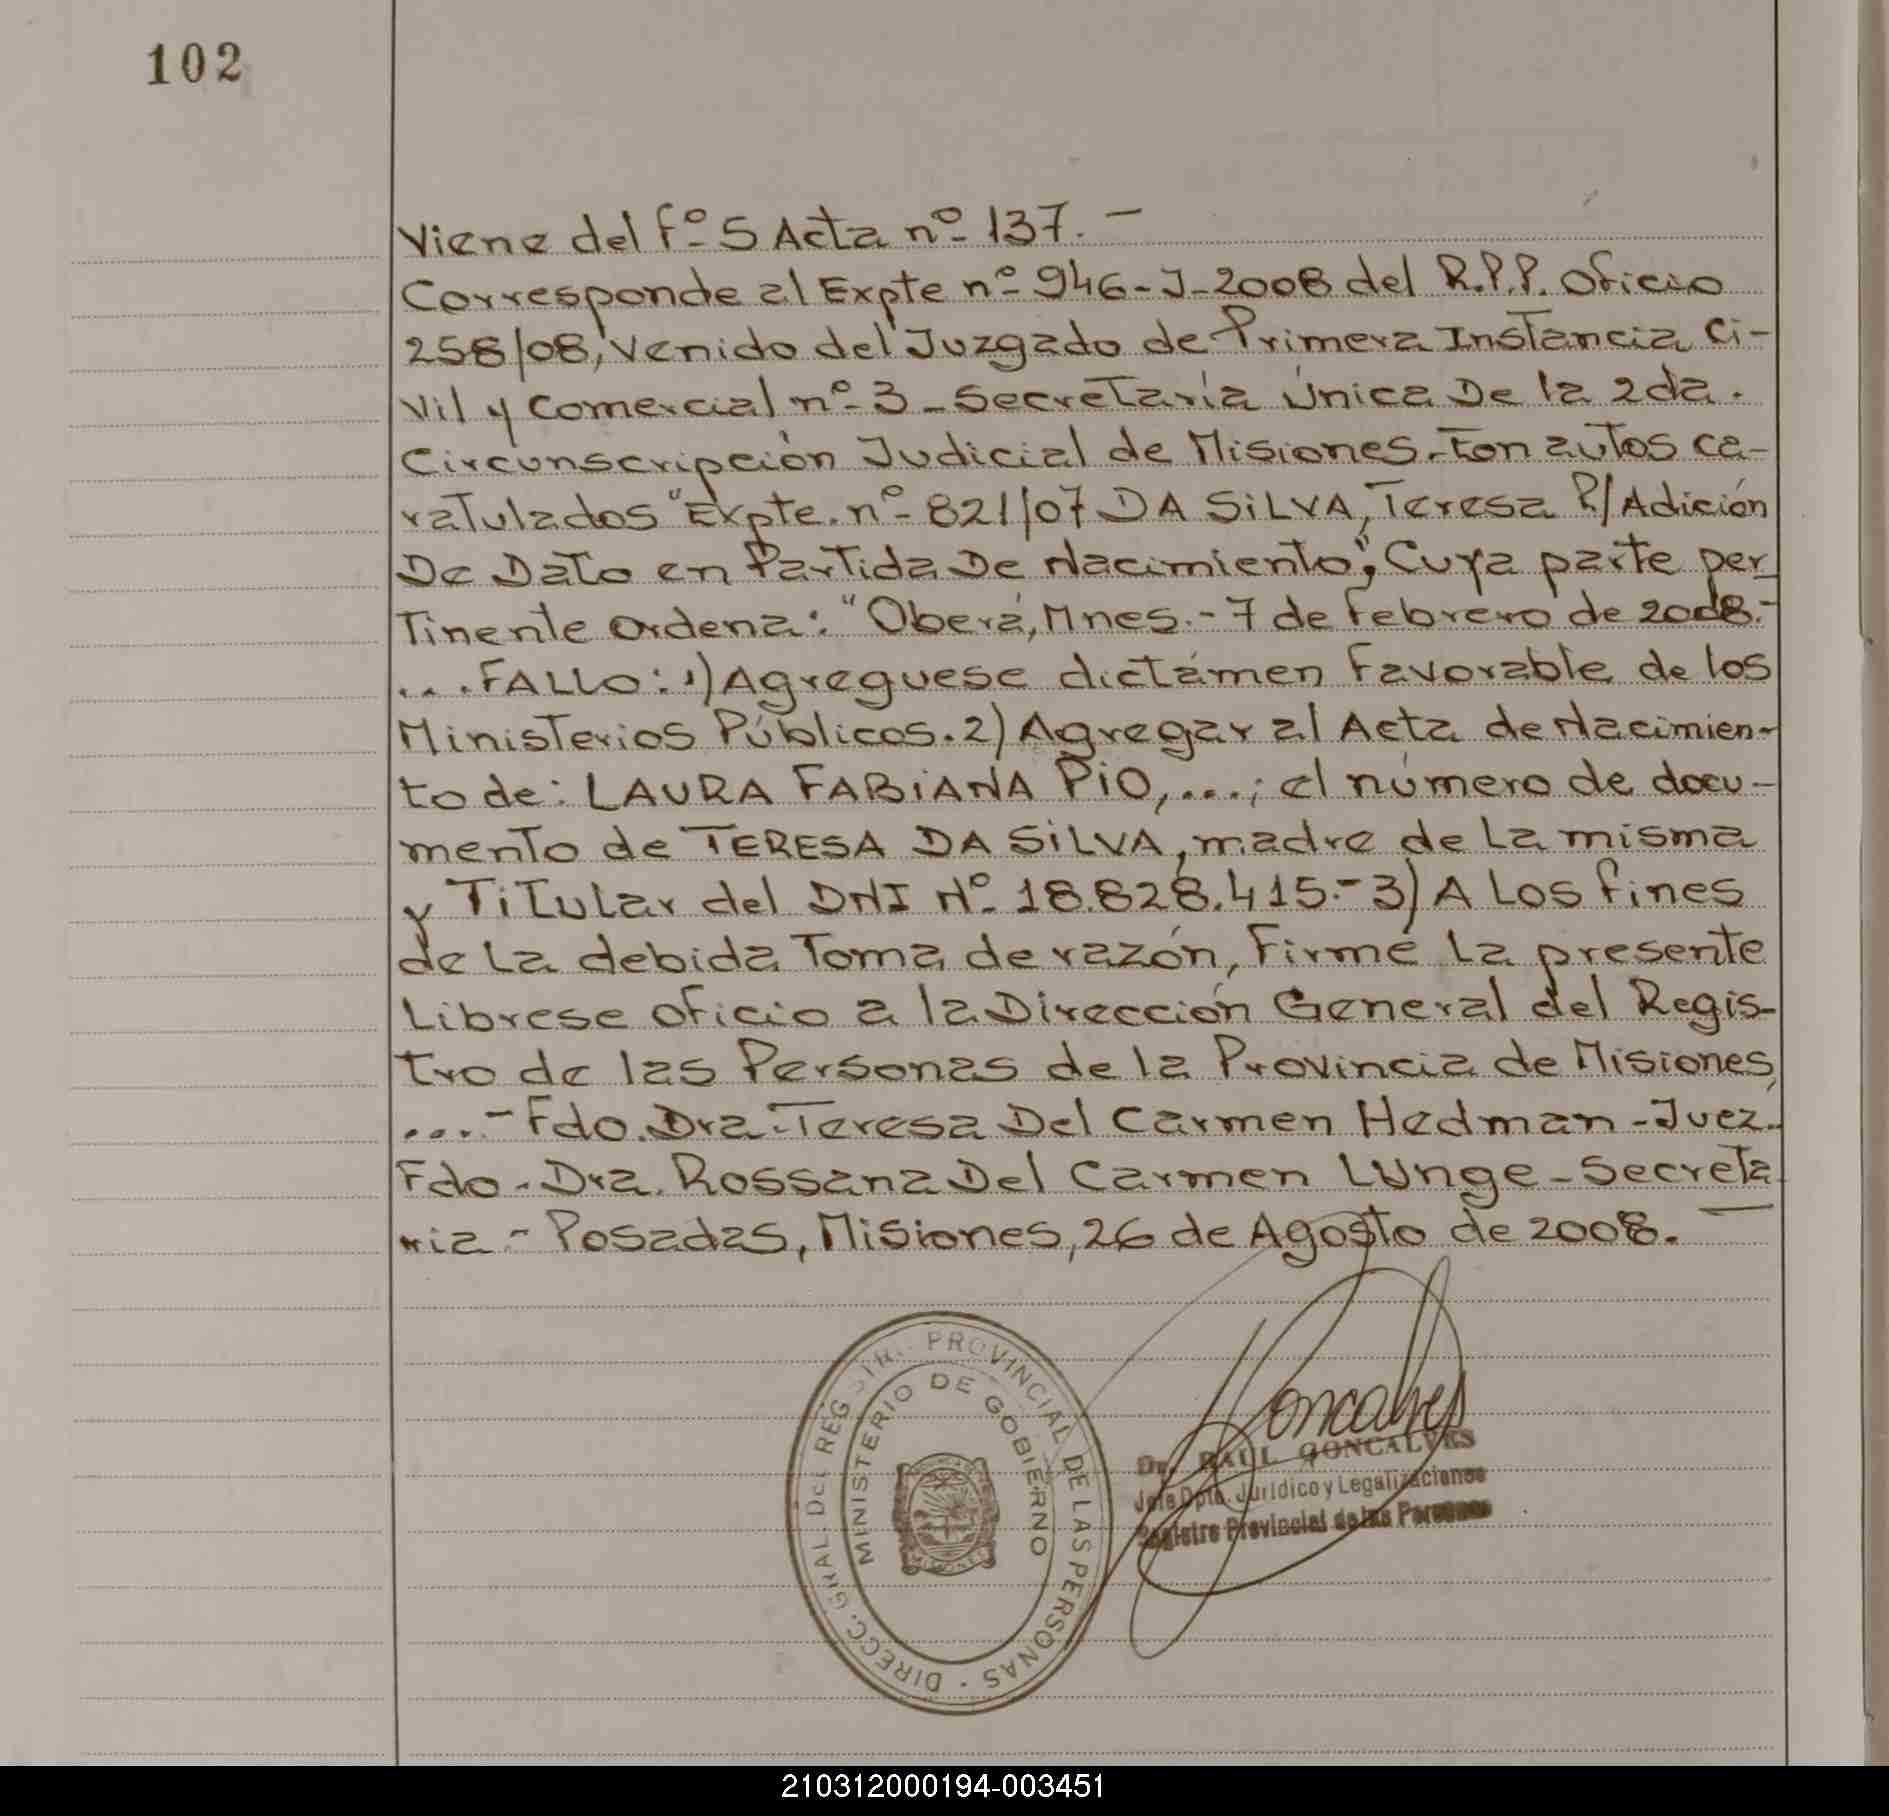 102
Viene del fº 5 Acta nº 137.-
Corresponde al Expte nº 946-J-2008 del R.P.P. Oficio
258/08, Venido del Juzgado de Primera Instancia Ci-
vil y Comercial nº 3 - Secretaría Única De la 2da.
Circunscripción Judicial de Misiones.- En autos ca-
ratulados "Expte. nº 821/07 DA SILVA, Teresa P/ Adición
De Dato en Partida De Nacimiento", Cuya parte per-
Tinente Ordena: "Oberá, Mnes.- 7 de febrero de 2008.-
....FALLO: 1) Agreguese dictámen Favorable de los
Ministerios Públicos. 2) Agregar al Acta de Nacimien-
to de: LAURA FABIANA PIO,....; el número de docu-
mento de TERESA DA SILVA, madre de La misma
y Titular del DNI Nº 18.828.415.- 3) A Los fines
de La debida Toma de razón, Firme La presente
Librese oficio a la Dirección General del Regis-
tro de las Personas de la Provincia de Misiones,
....- Fdo. Dra. Teresa Del Carmen Hedman - Juez.
Fdo. Dra. Rossana Del Carmen Lunge - Secreta
ria - Posadas, Misiones, 26 de Agosto de 2008. -
DIRECC. GRAL. DEL REGISTR. PROVINCIAL DE LAS PERSONAS
MINISTERIO DE GOBIERNO
MISIONES
Goncalves
Dr. RAUL GONCALVES
Jefe Dpto. Jurídico y Legalizaciones
Registro Provincial de las Personas
210312000194-003451